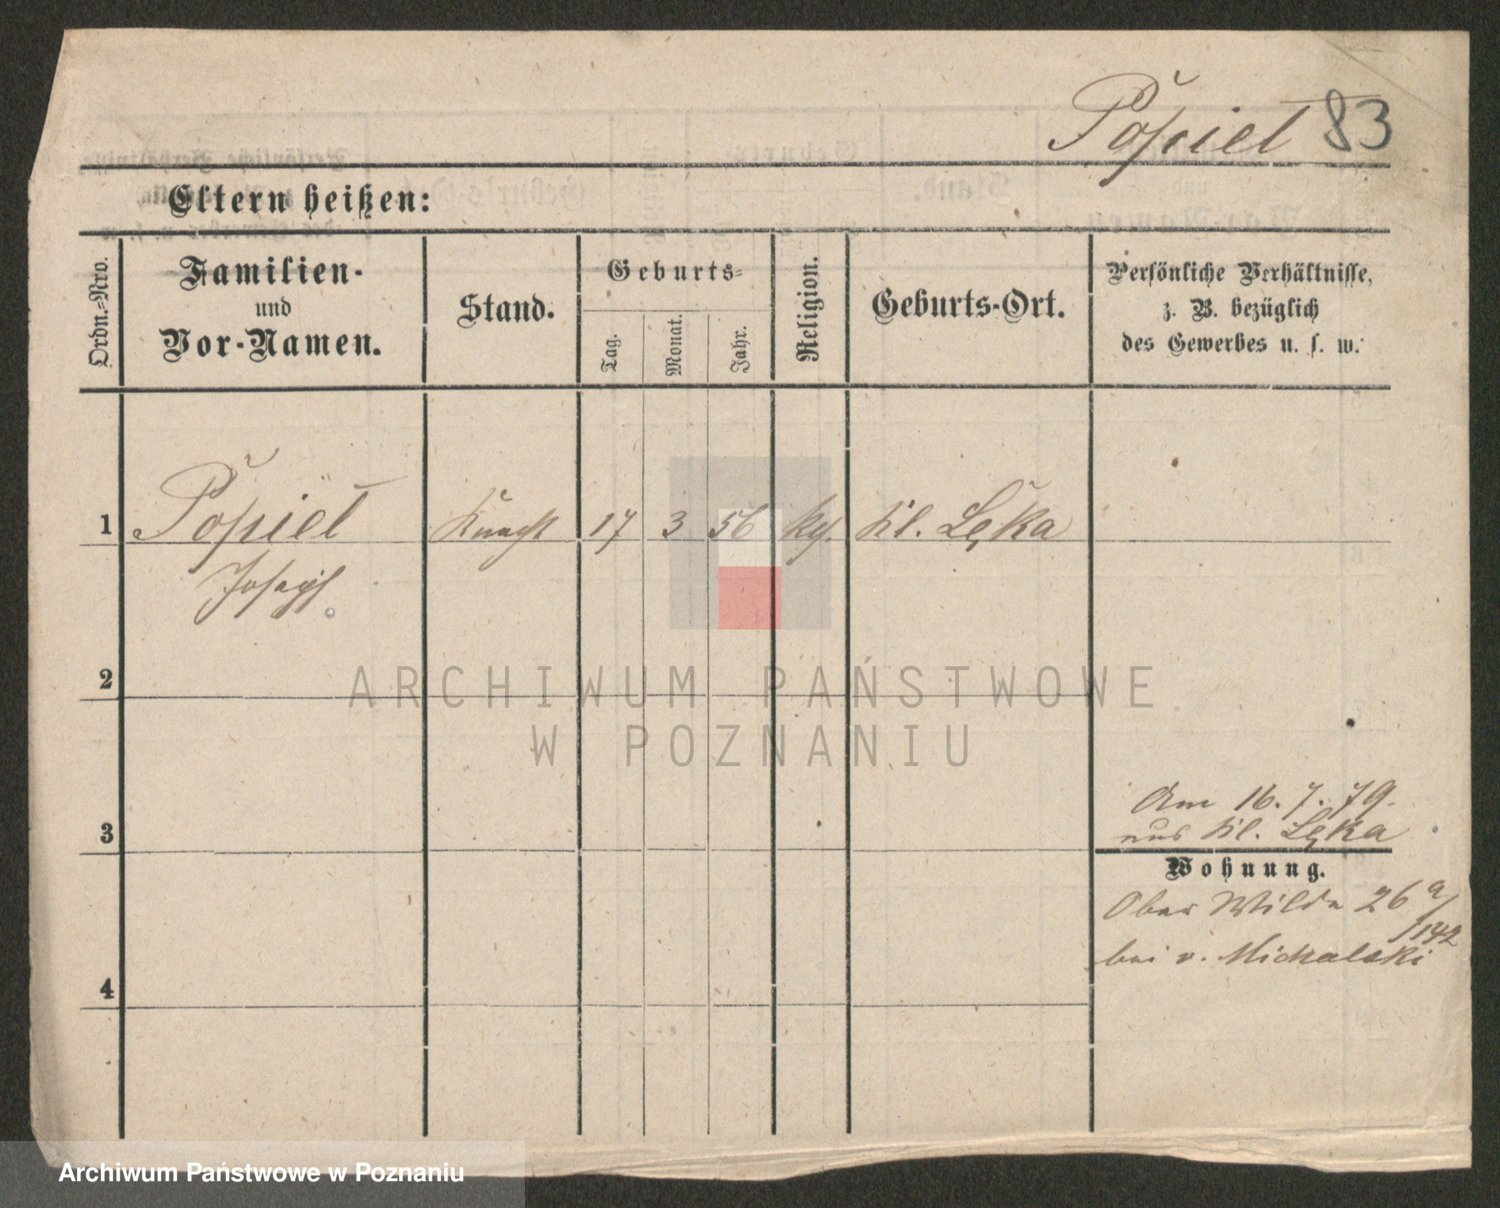 Popiel 83
Eltern heißen:
Ordn.-Nro.
Familien-
und
Vor-Namen.
Stand.
Geburts-
Tag.
Monat.
Jahr.
Religion.
Geburts-Ort.
Persönliche Verhältnisse,
z. B. bezüglich
des Gewerbes u. s. w.
1 Popiel Knecht 17 3 56 kth. Kl. Lęka
Joseph
2
ARCHIWUM PAŃSTWOWE
W POZNANIU
Am 16. 7. 79.
3 aus Kl. Lęka
Wohnung.
Ober Wilda 26 a/
/142
bei v. Michalski
4
Archiwum Państwowe w Poznaniu